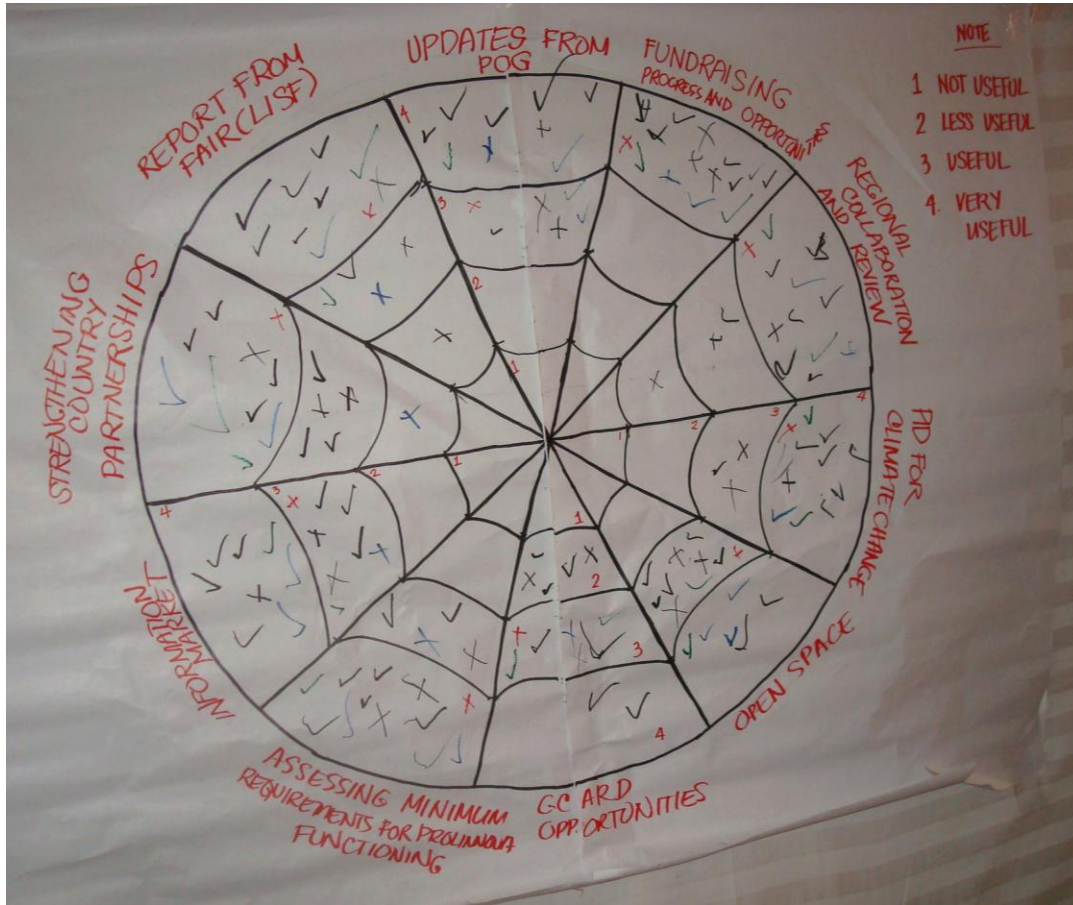 NOTE
1 NOT USEFUL
2 LESS USEFUL
3 USEFUL
4. VERY
USEFUL
UPDATES FROM
POG
FUNDRAISING
PROGRESS AND OPPORTUNITIES
REGIONAL
COLLABORATION
AND REVIEW
PID FOR
CLIMATE CHANGE
OPEN SPACE
GC ARD
OPPORTUNITIES
ASSESSING MINIMUM
REQUIREMENTS FOR PROLINNOVA
FUNCTIONING
INFORMATION
MARKET
STRENGTHENING
COUNTRY
PARTNERSHIPS
REPORT FROM
FAIR (LISF)
4
3
2
1
1
2
3
4
1
2
3
4
1
2
3
4